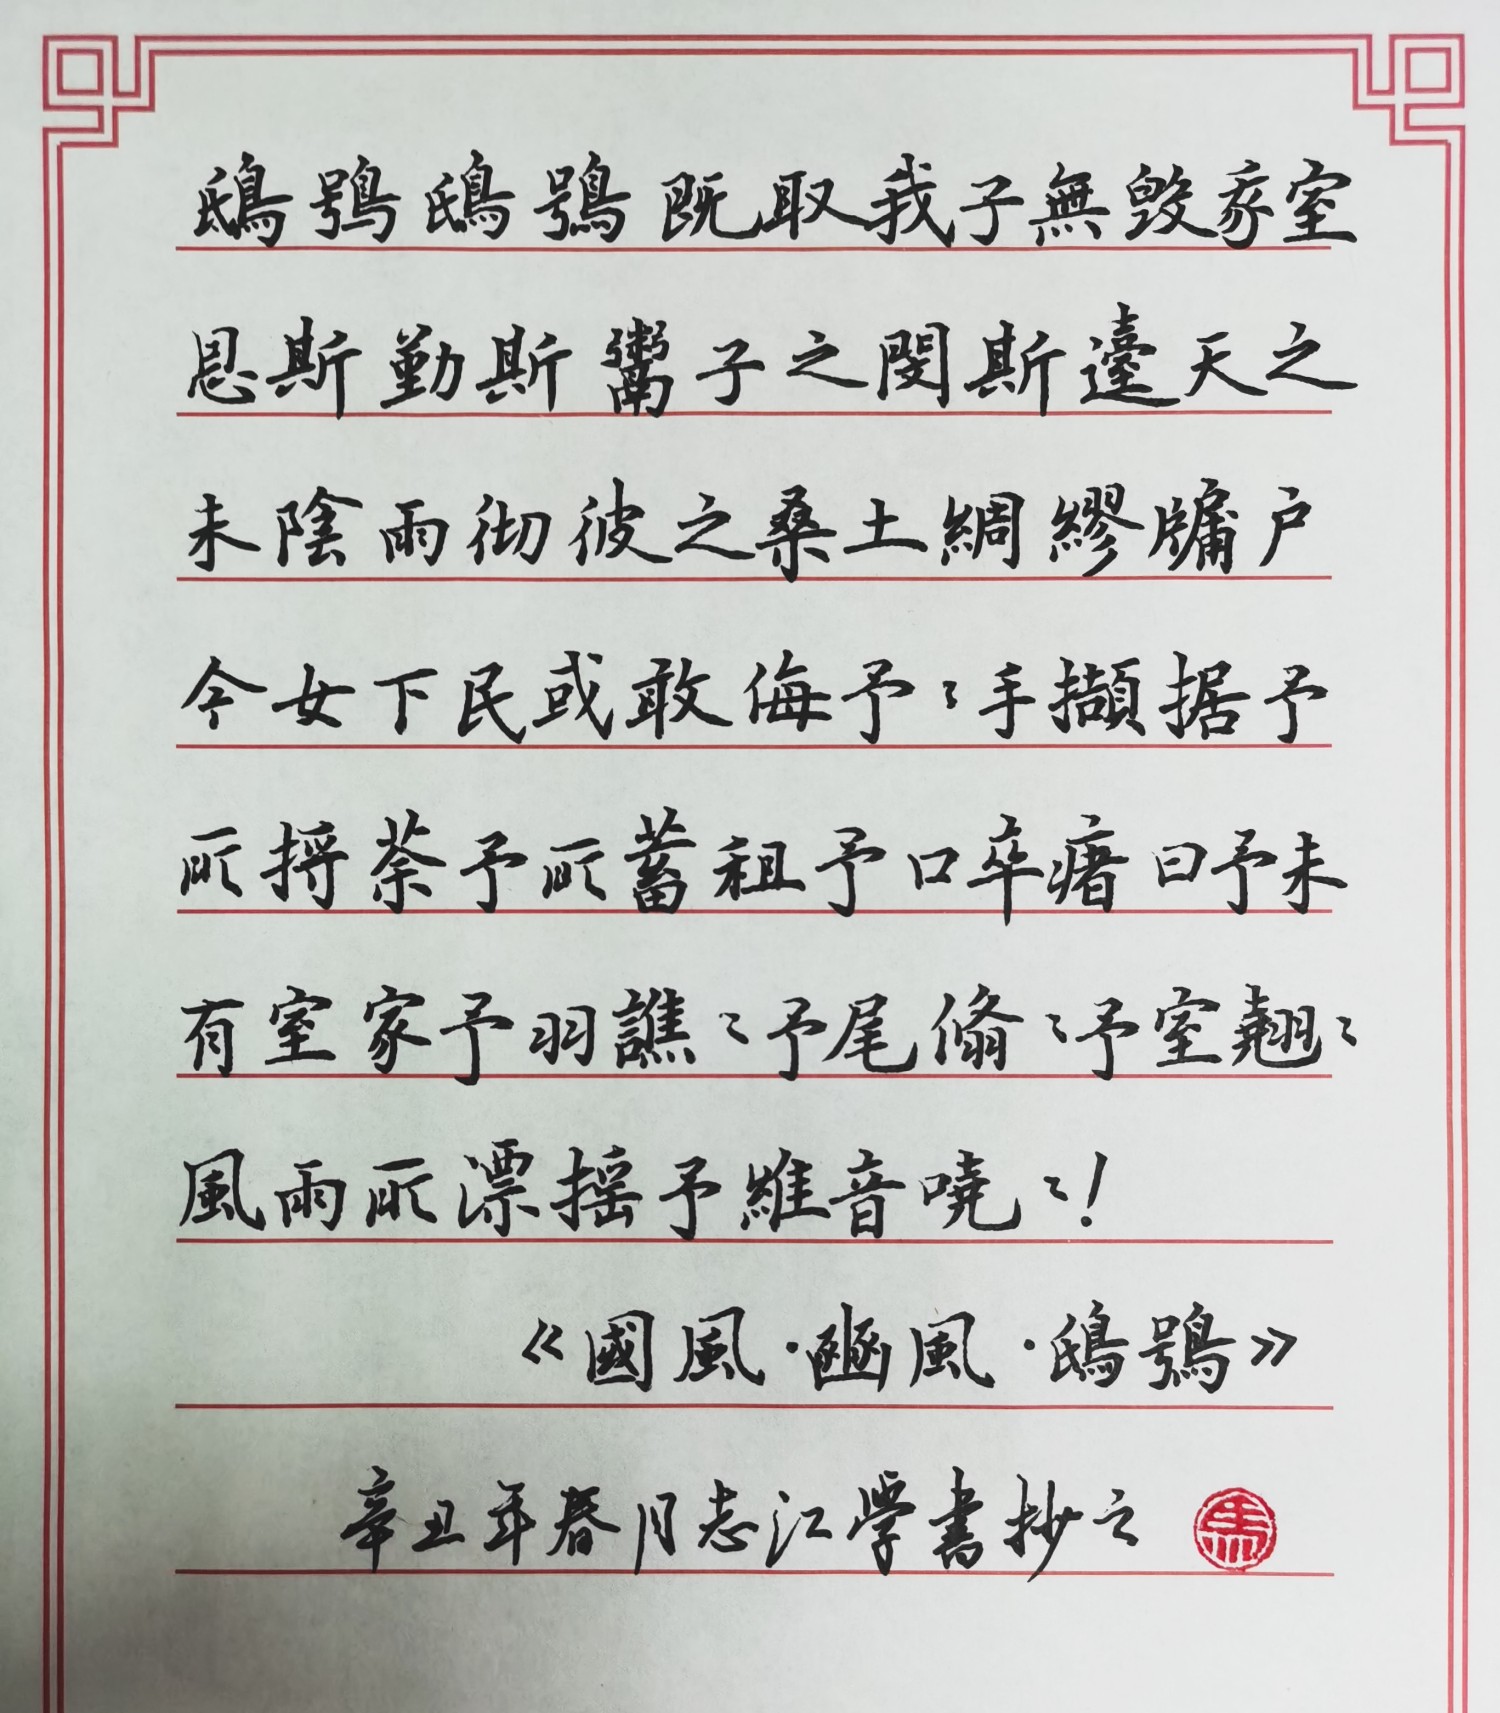 鴟鴞鴟鴞既取我子無毀我室
恩斯勤斯鬻子之閔斯迨天之
未陰雨彻彼之桑土綢繆牖戶
今女下民或敢侮予〻手擷据予
所捋荼予所蓄租予口卒瘏曰予未
有室家予羽譙〻予尾翛〻予室翹〻
風雨所漂摇予維音嘵〻！
《國風·豳風·鴟鴞》
辛丑年春月志江學書抄之
馬